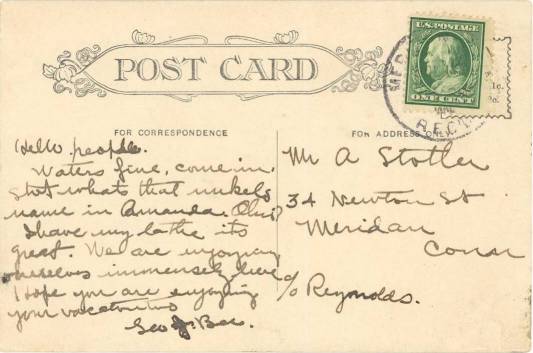 POST CARD
U.S. POSTAGE
ONE CENT
MER
REC'D
1c.
FOR CORRESPONDENCE
FOR ADDRESS ONLY
Hello people.
Waters fine, come in.
whats that
name in Amanda. Ohio?
I have my bathe its
great. We are enjoying
ourselves immensely here
I hope you are enjoying
your vacation too
Geo Bee.
Mr A Stotler
34 Newton St
Meridan
Conn
c/o Reynolds.